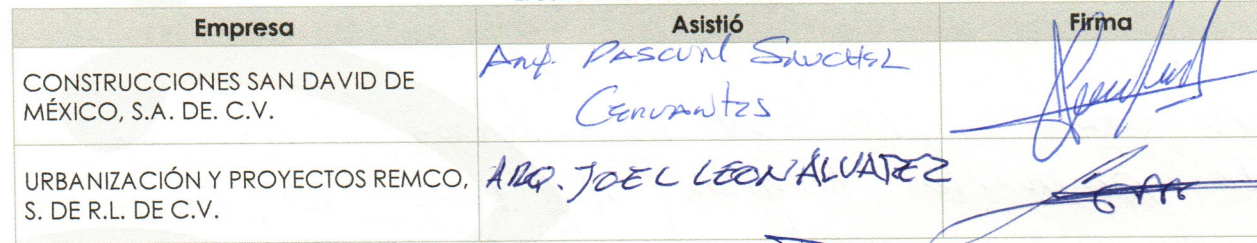 Empresa Asistió Firma
CONSTRUCCIONES SAN DAVID DE
MÉXICO, S.A. DE. C.V.
Arq. PASCUAL SANCHEZ
CERVANTES
URBANIZACIÓN Y PROYECTOS REMCO,
S. DE R.L. DE C.V.
ARQ. JOEL LEON ALVAREZ